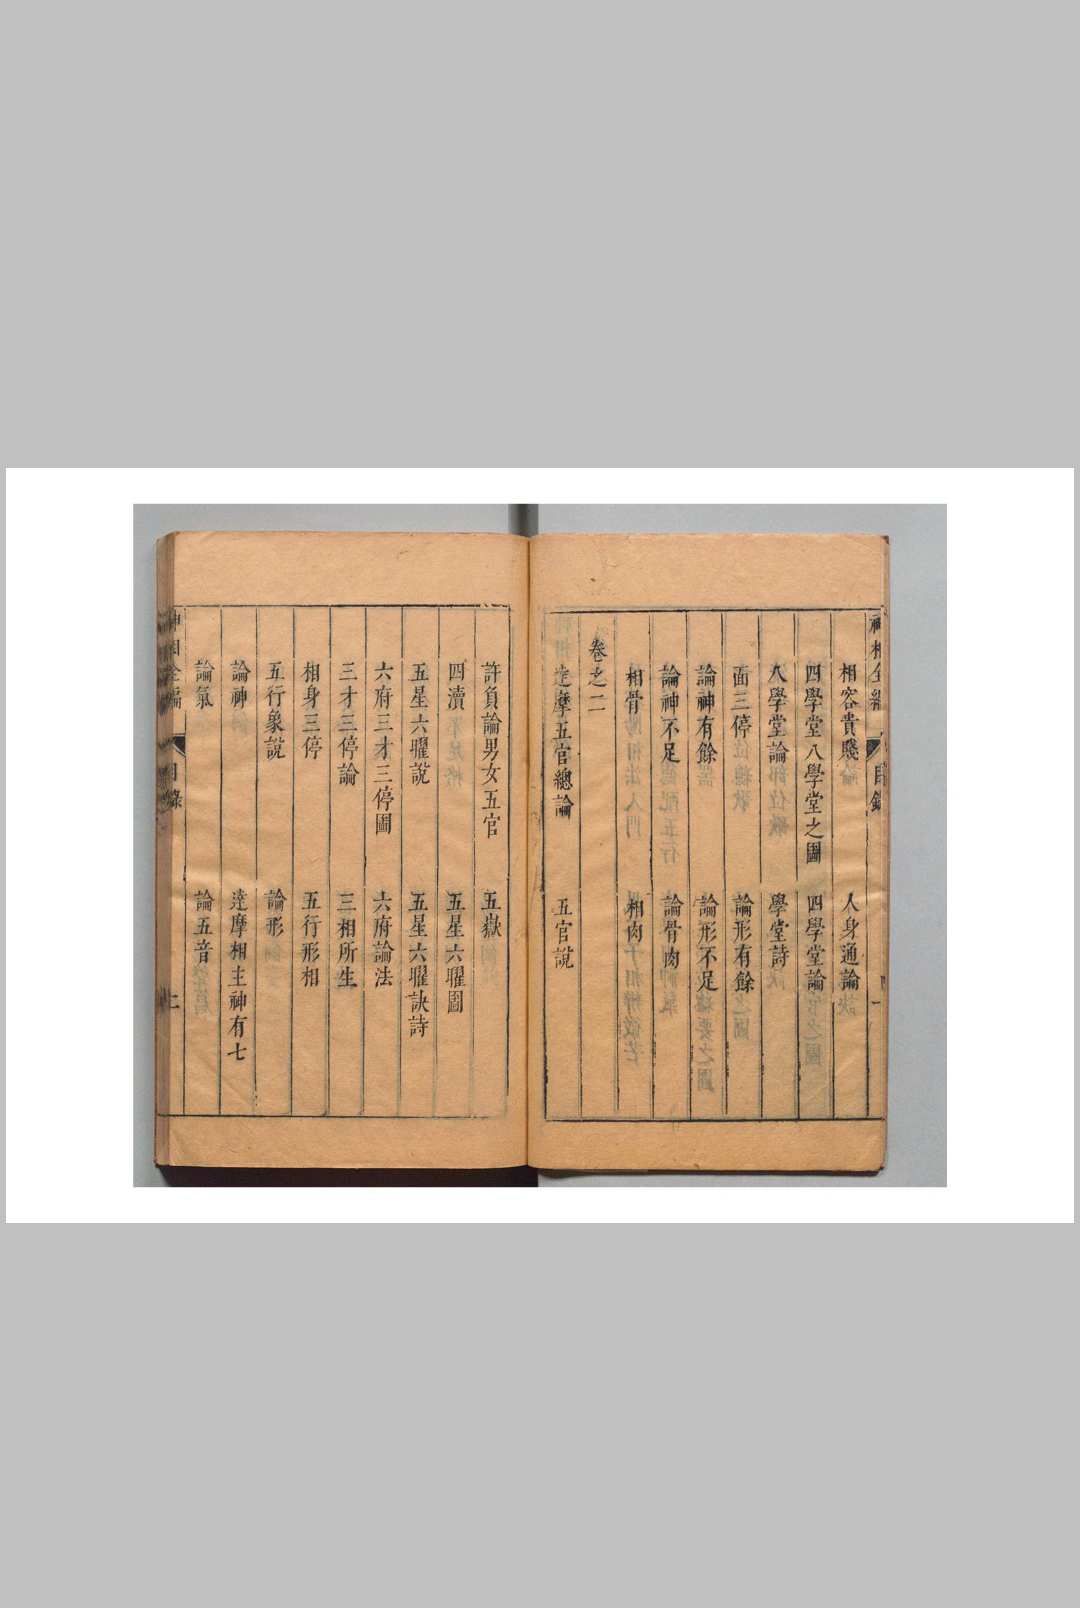 相容貴賤 人身通論
四學堂八學堂之圖 四學堂論
八學堂論 學堂詩
面三停 論形有餘
論神有餘 論形不足
論神不足 論骨肉
相骨 相肉
卷之二
達摩五官總論 五官說
許負論男女五官 五嶽
四瀆 五星六曜圖
五星六曜說 五星六曜訣詩
六府三才三停圖 六府論法
三才三停論 三相所生
相身三停 五行形相
五行象說 論形
論神 達摩相主神有七
論氣 論五音
神相全編 目錄 二